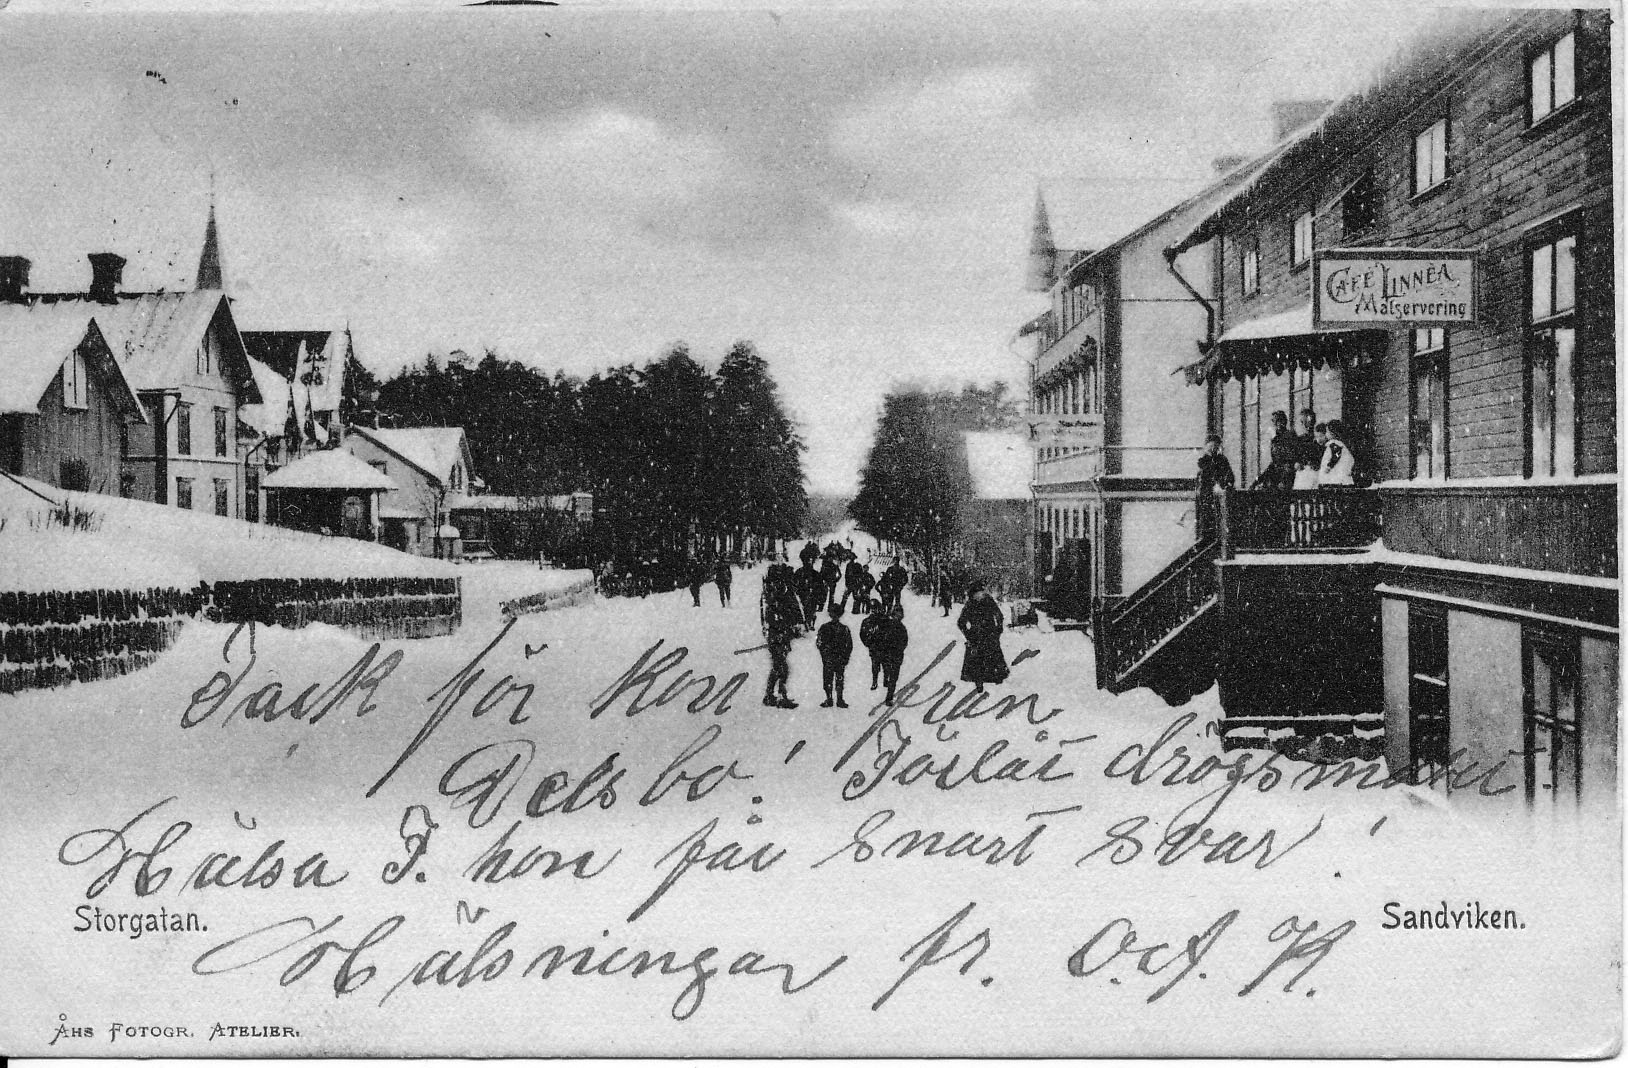 CAFÉ LINNÈA
Matservering
Tack för kort från
Delsbo! Förlåt drögsmålet!
Hälsa F. hon får snart svar!
Storgatan.
Sandviken.
Hälsningar fr. O. K.
ÅHS FOTOGR. ATELIER.